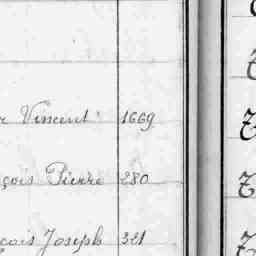 r Vincent 1669
çois Pierre 280
çois Joseph 321